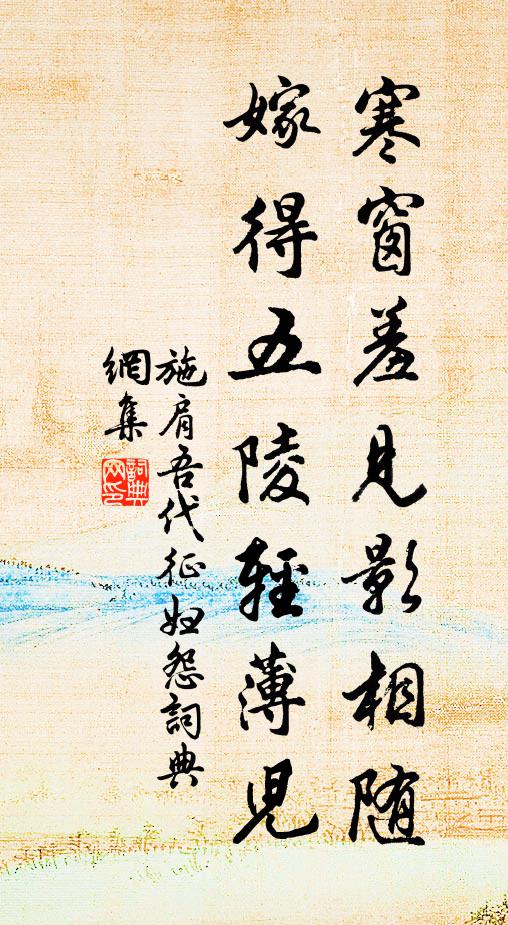 寒窗羞見影相随
嫁得五陵輕薄兒
施肩吾代征婦怨詞典
網集
詞典網印